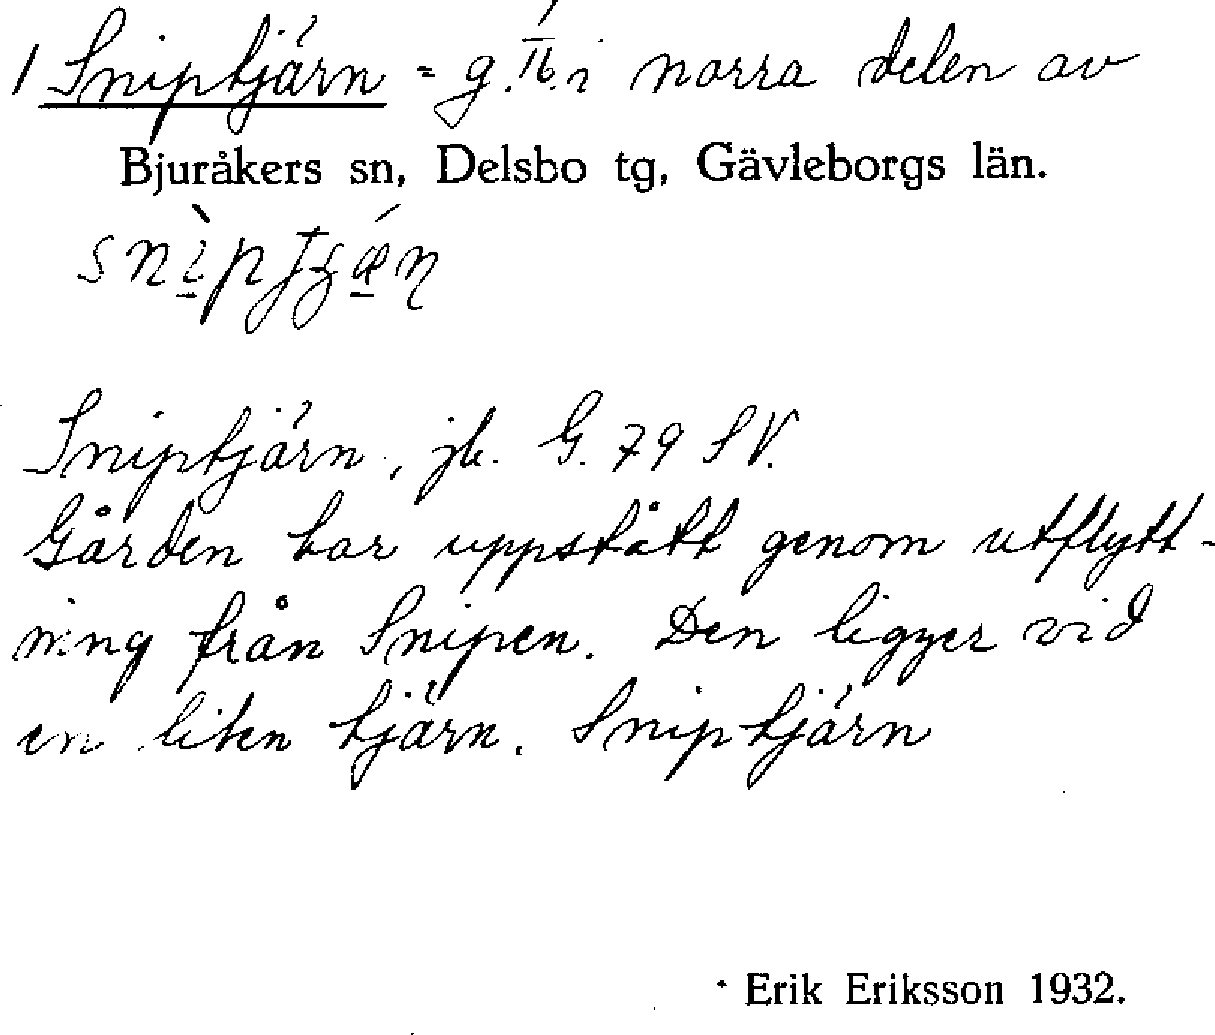 1 Sniptjärn = g. i norra delen av
Bjuråkers sn, Delsbo tg, Gävleborgs län.
Sniptjärn, jb. G. 79 SV.
Gården har uppstått genom utflytt-
ning från Snipen. Den ligger vid
en liten tjärn. Sniptjärn
Erik Eriksson 1932.